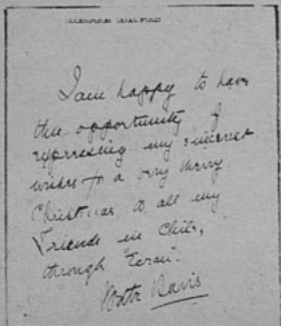 I am happy to have
this opportunity of
expressing my sincerest
wishes for a very merry
Christmas, to all my
Friends in Chile,
through "Ecran".
Bette Davis